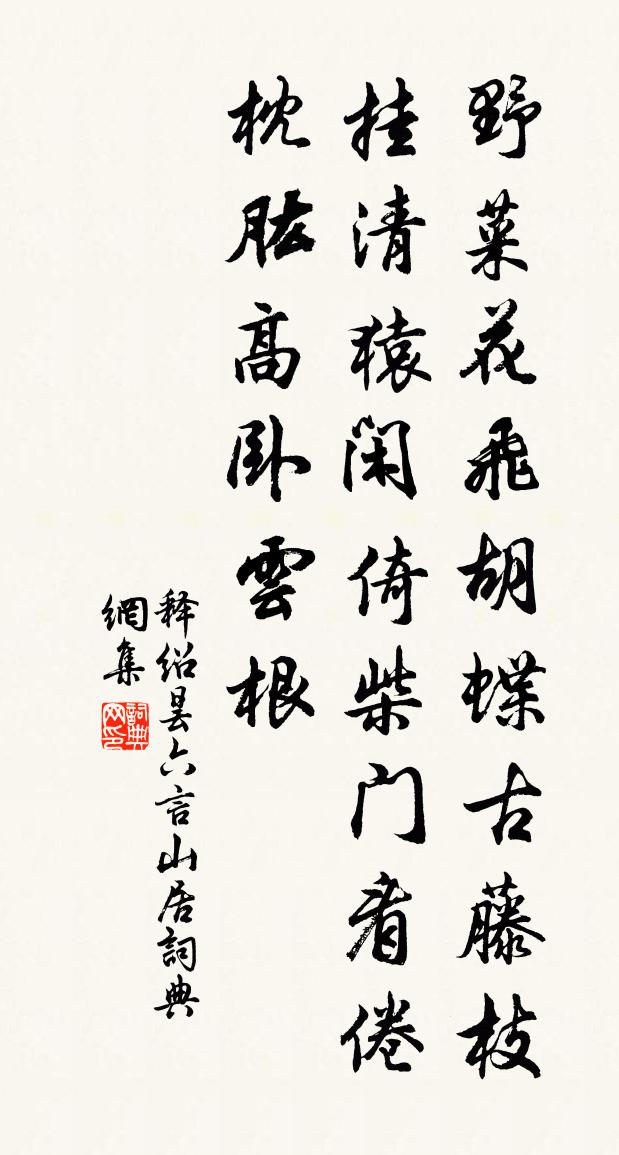 野菜花飛胡蝶古藤枝
挂清猿閑倚柴门看倦
枕肱高卧雲根
释绍昙六言山居詞典
網集
詞典网印